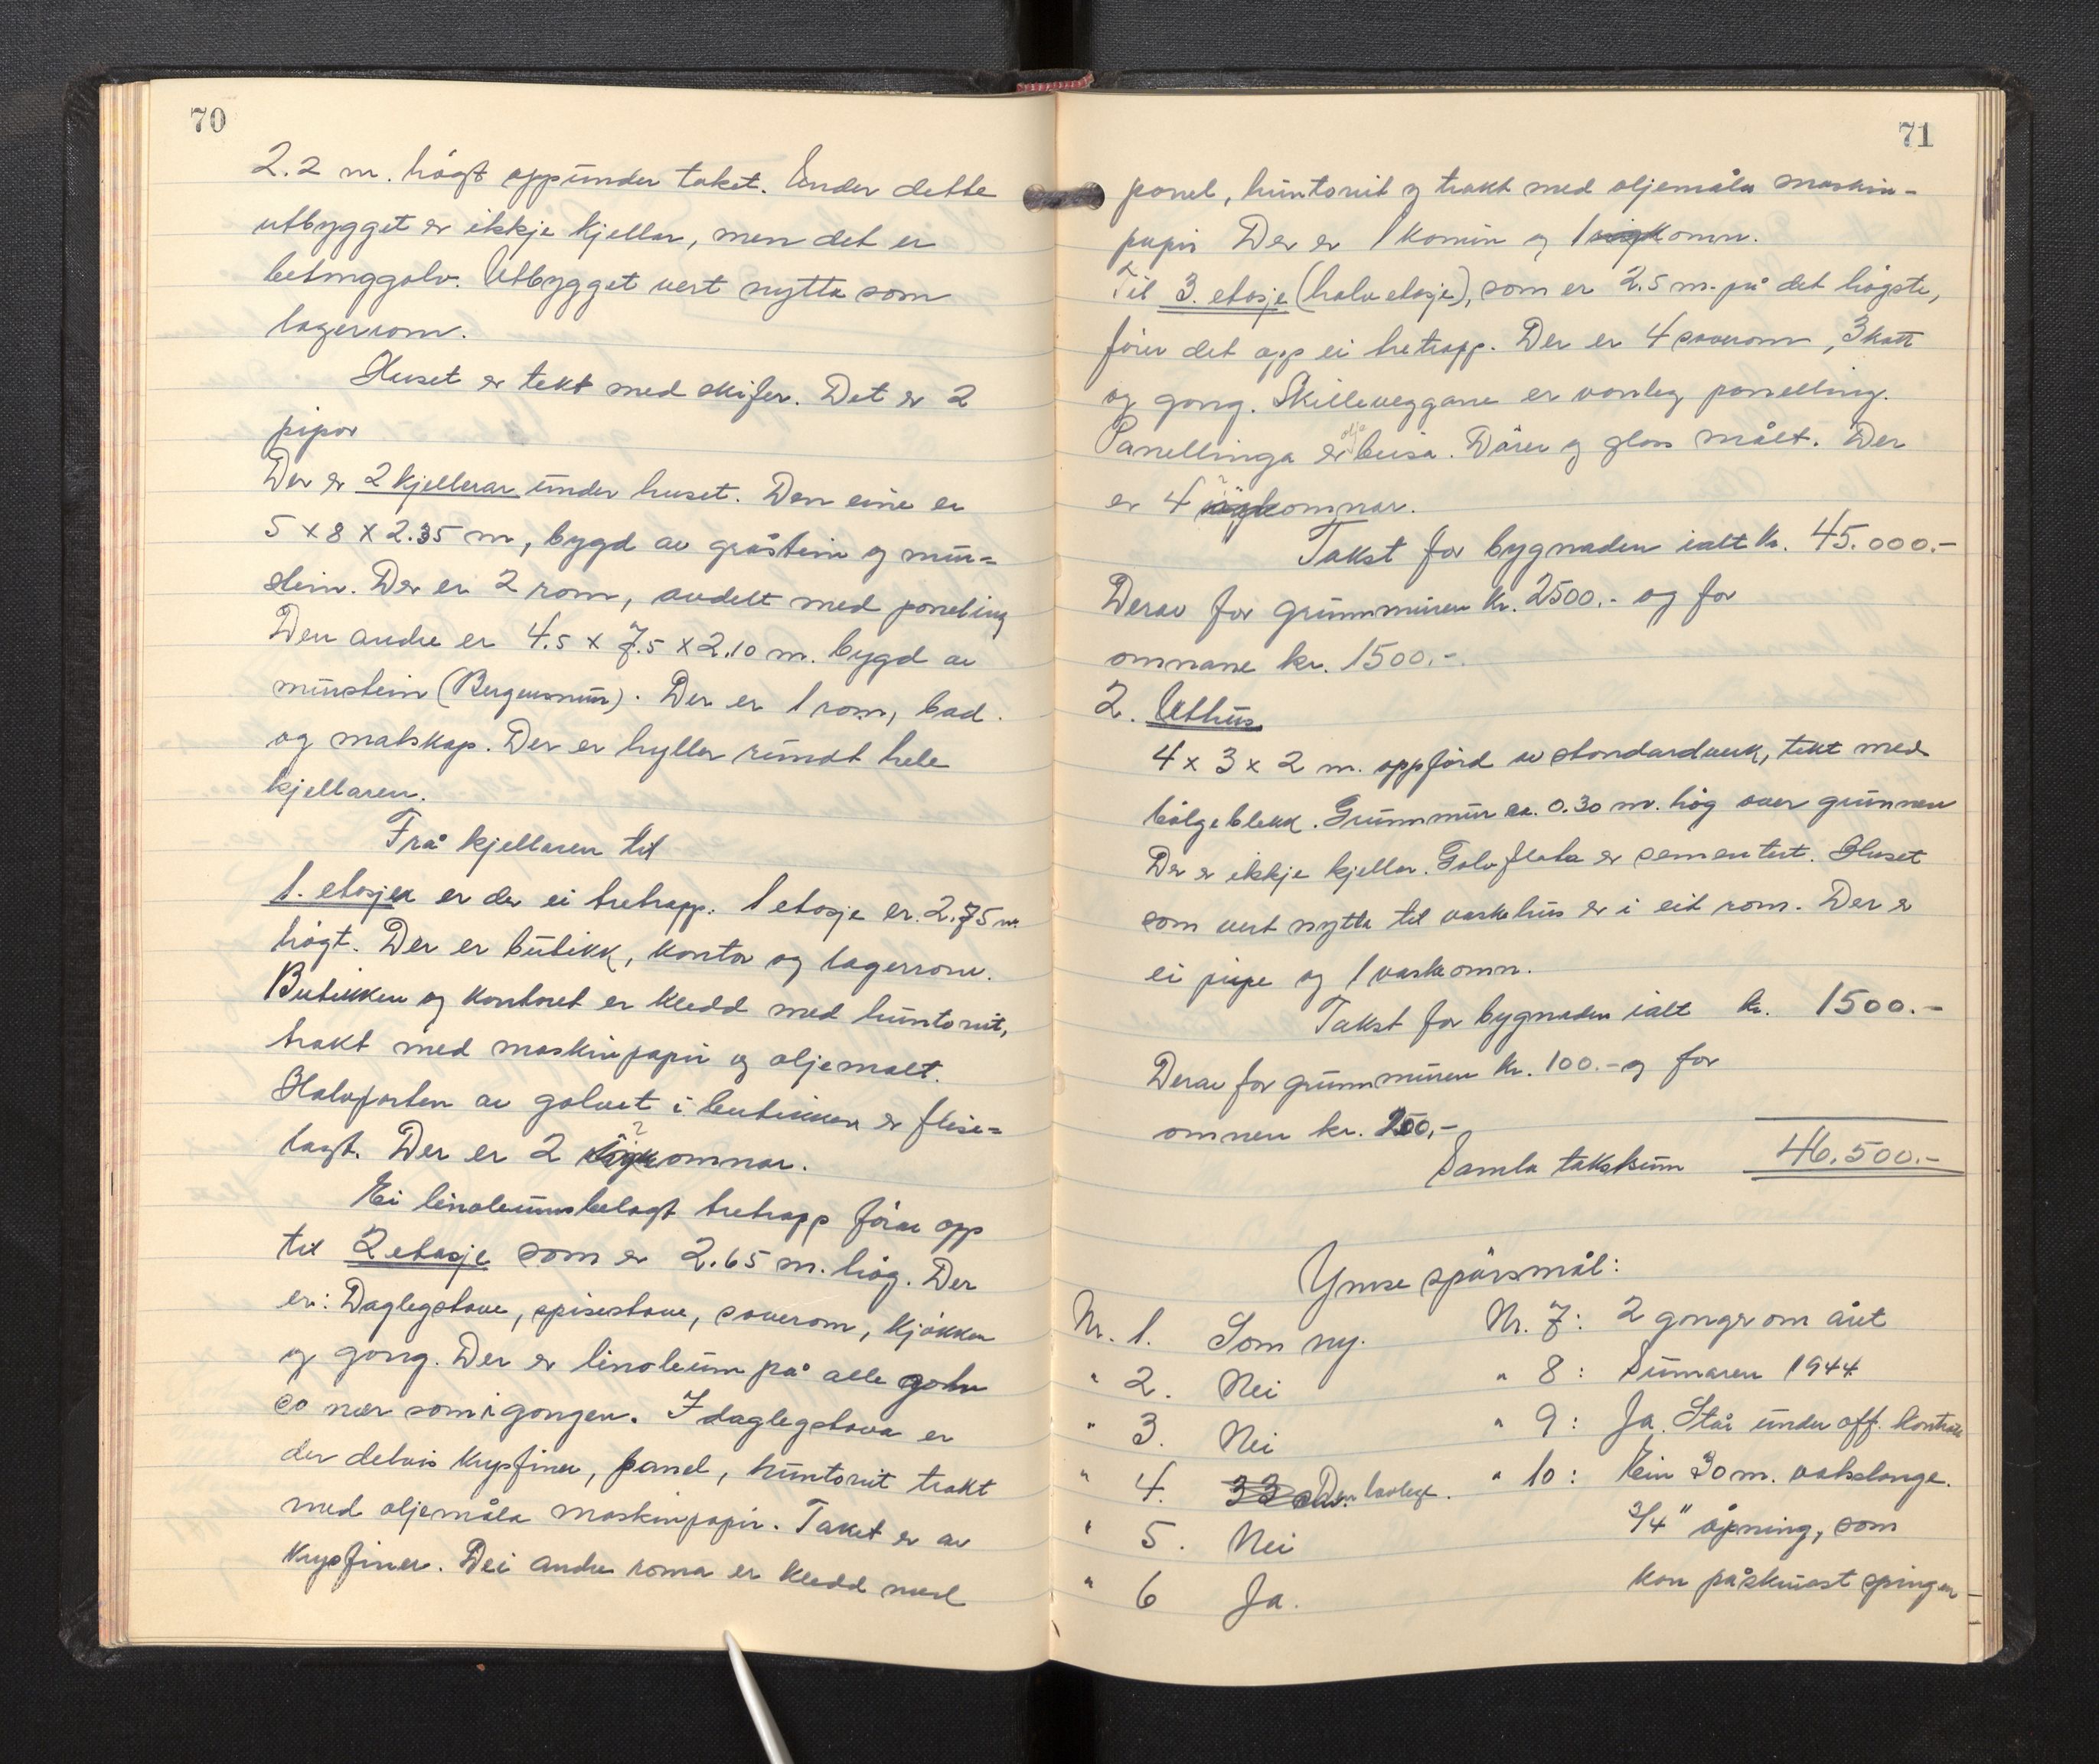 70
2.2 m. högt oppunder taket. Under dette
utbygget er ikkje kjellar, men det er
betonggolv. Utbygget vert nytta som
lagerrom.
Huset er tekt med skifer. Det er 2
pipor
Der er 2 kjellerar under huset. Den eine er
5 x 8 x 2.35 m, bygd av gråstein og mur=
stein. Der er 2 rom, avdelt med paneling
Den andre er 4.5 x 7.5 x 2.10 m. bygd av
murstein (Bergensmur). Der er 1 rom, bad
og matskap. Der er hyller rundt hele
kjellaren.
Frå kjellaren til
1. etasjen er der ei tretrapp. 1 etasje er 2.75 m
högt. Der er butikk, kontor og lagerrom.
Butikken og kontoret er kledd med huntonit,
trakt med maskinpapir og oljemalt.
Halvparten av golvet i butikken er flise=
lagt. Der er 2 omnar.
Ei linoleumsbelagt tretrapp förar opp
til 2 etasje som er 2.65 m. hög. Der
er: Daglegstove, spisestove, soverom, kjökken
og gong. Der er linoleum på alle golv
so nær som i gongen. I daglegstova er
der delvis krysfiner, panel, huntonit trakt
med oljemåla maskinpapir. Taket er av
krysfiner. Dei andre roma er kledd med
71
panel, huntonit og trakt med oljemåla maskin-
papir Der er 1 komin og 1 omn.
Til 3. etasje (halv etasje), som er 2.5 m. på det högste,
förer det opp ei tretrapp. Der er 4 soverom, 3 kott
og gong. Skilleveggane er vanleg panelling.
Panellinga er olje beisa. Dörer og glas målt. Der
er 4 omnar.
Takst for bygnaden ialt kr. 45.000.-
Derav for grunnmuren kr. 2500.- og for
omnane kr. 1500.-
2. Uthus
4 x 3 x 2 m. oppförd av standardverk, tekt med
bölgeblekk. Grunnmur ca. 0.30 m. hög over grunnen
Der er ikkje kjellar. Golvflata er sementert. Huset
som vert nytta til vaskehus er i eit rom. Der er
ei pipe og 1 vaskeomn.
Takst for bygnaden ialt kr. 1500.-
Derav for grunnmuren kr. 100.- og for
omnen kr. 200,-
Samla takstsum 46.500.-
Ymse spörsmål:
Nr. 1. Som ny. Nr. 7: 2 gonger om året
" 2. Nei " 8: Sumaren 1944
" 3. Nei " 9: Ja. Står under off. kontroll
" 4. " 10: Ein 30 m. vatslange.
" 5. Nei 3/4" åpning, som
" 6 Ja. kan påskruast springen